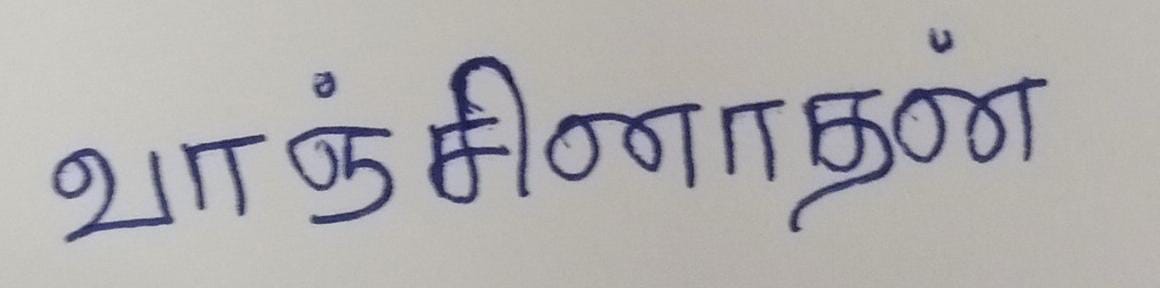 வாஞ்சினாதன்